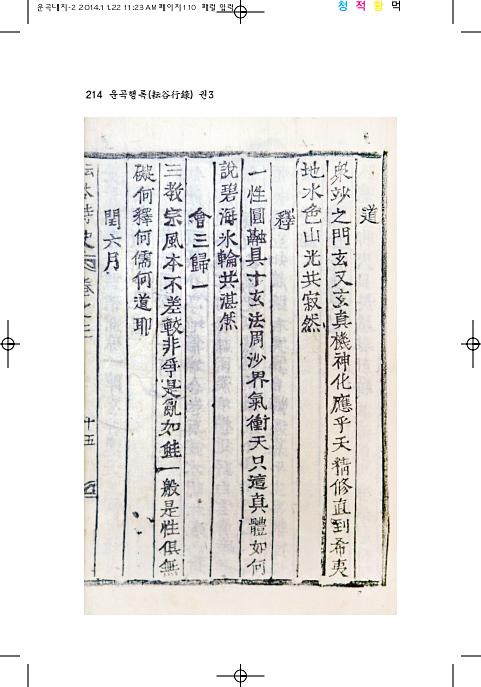 운곡내지-2 2014.11.22 11:23 AM 페이지110 패컬 입력
청 적 황 먹
214 운곡행록(耘谷行錄) 권3
道
衆妙之門玄又玄真機神化應乎天精修直到希夷
地水色山光共寂然
釋
一性圓融具十玄法周沙界氣衝天只這真體如何
說碧海氷輪共湛然
會三歸一
三教宗風本不差較非爭是亂如鮭一般是性俱無
礙何釋何儒何道耶
閏六月
耘谷詩史 卷之三 十五